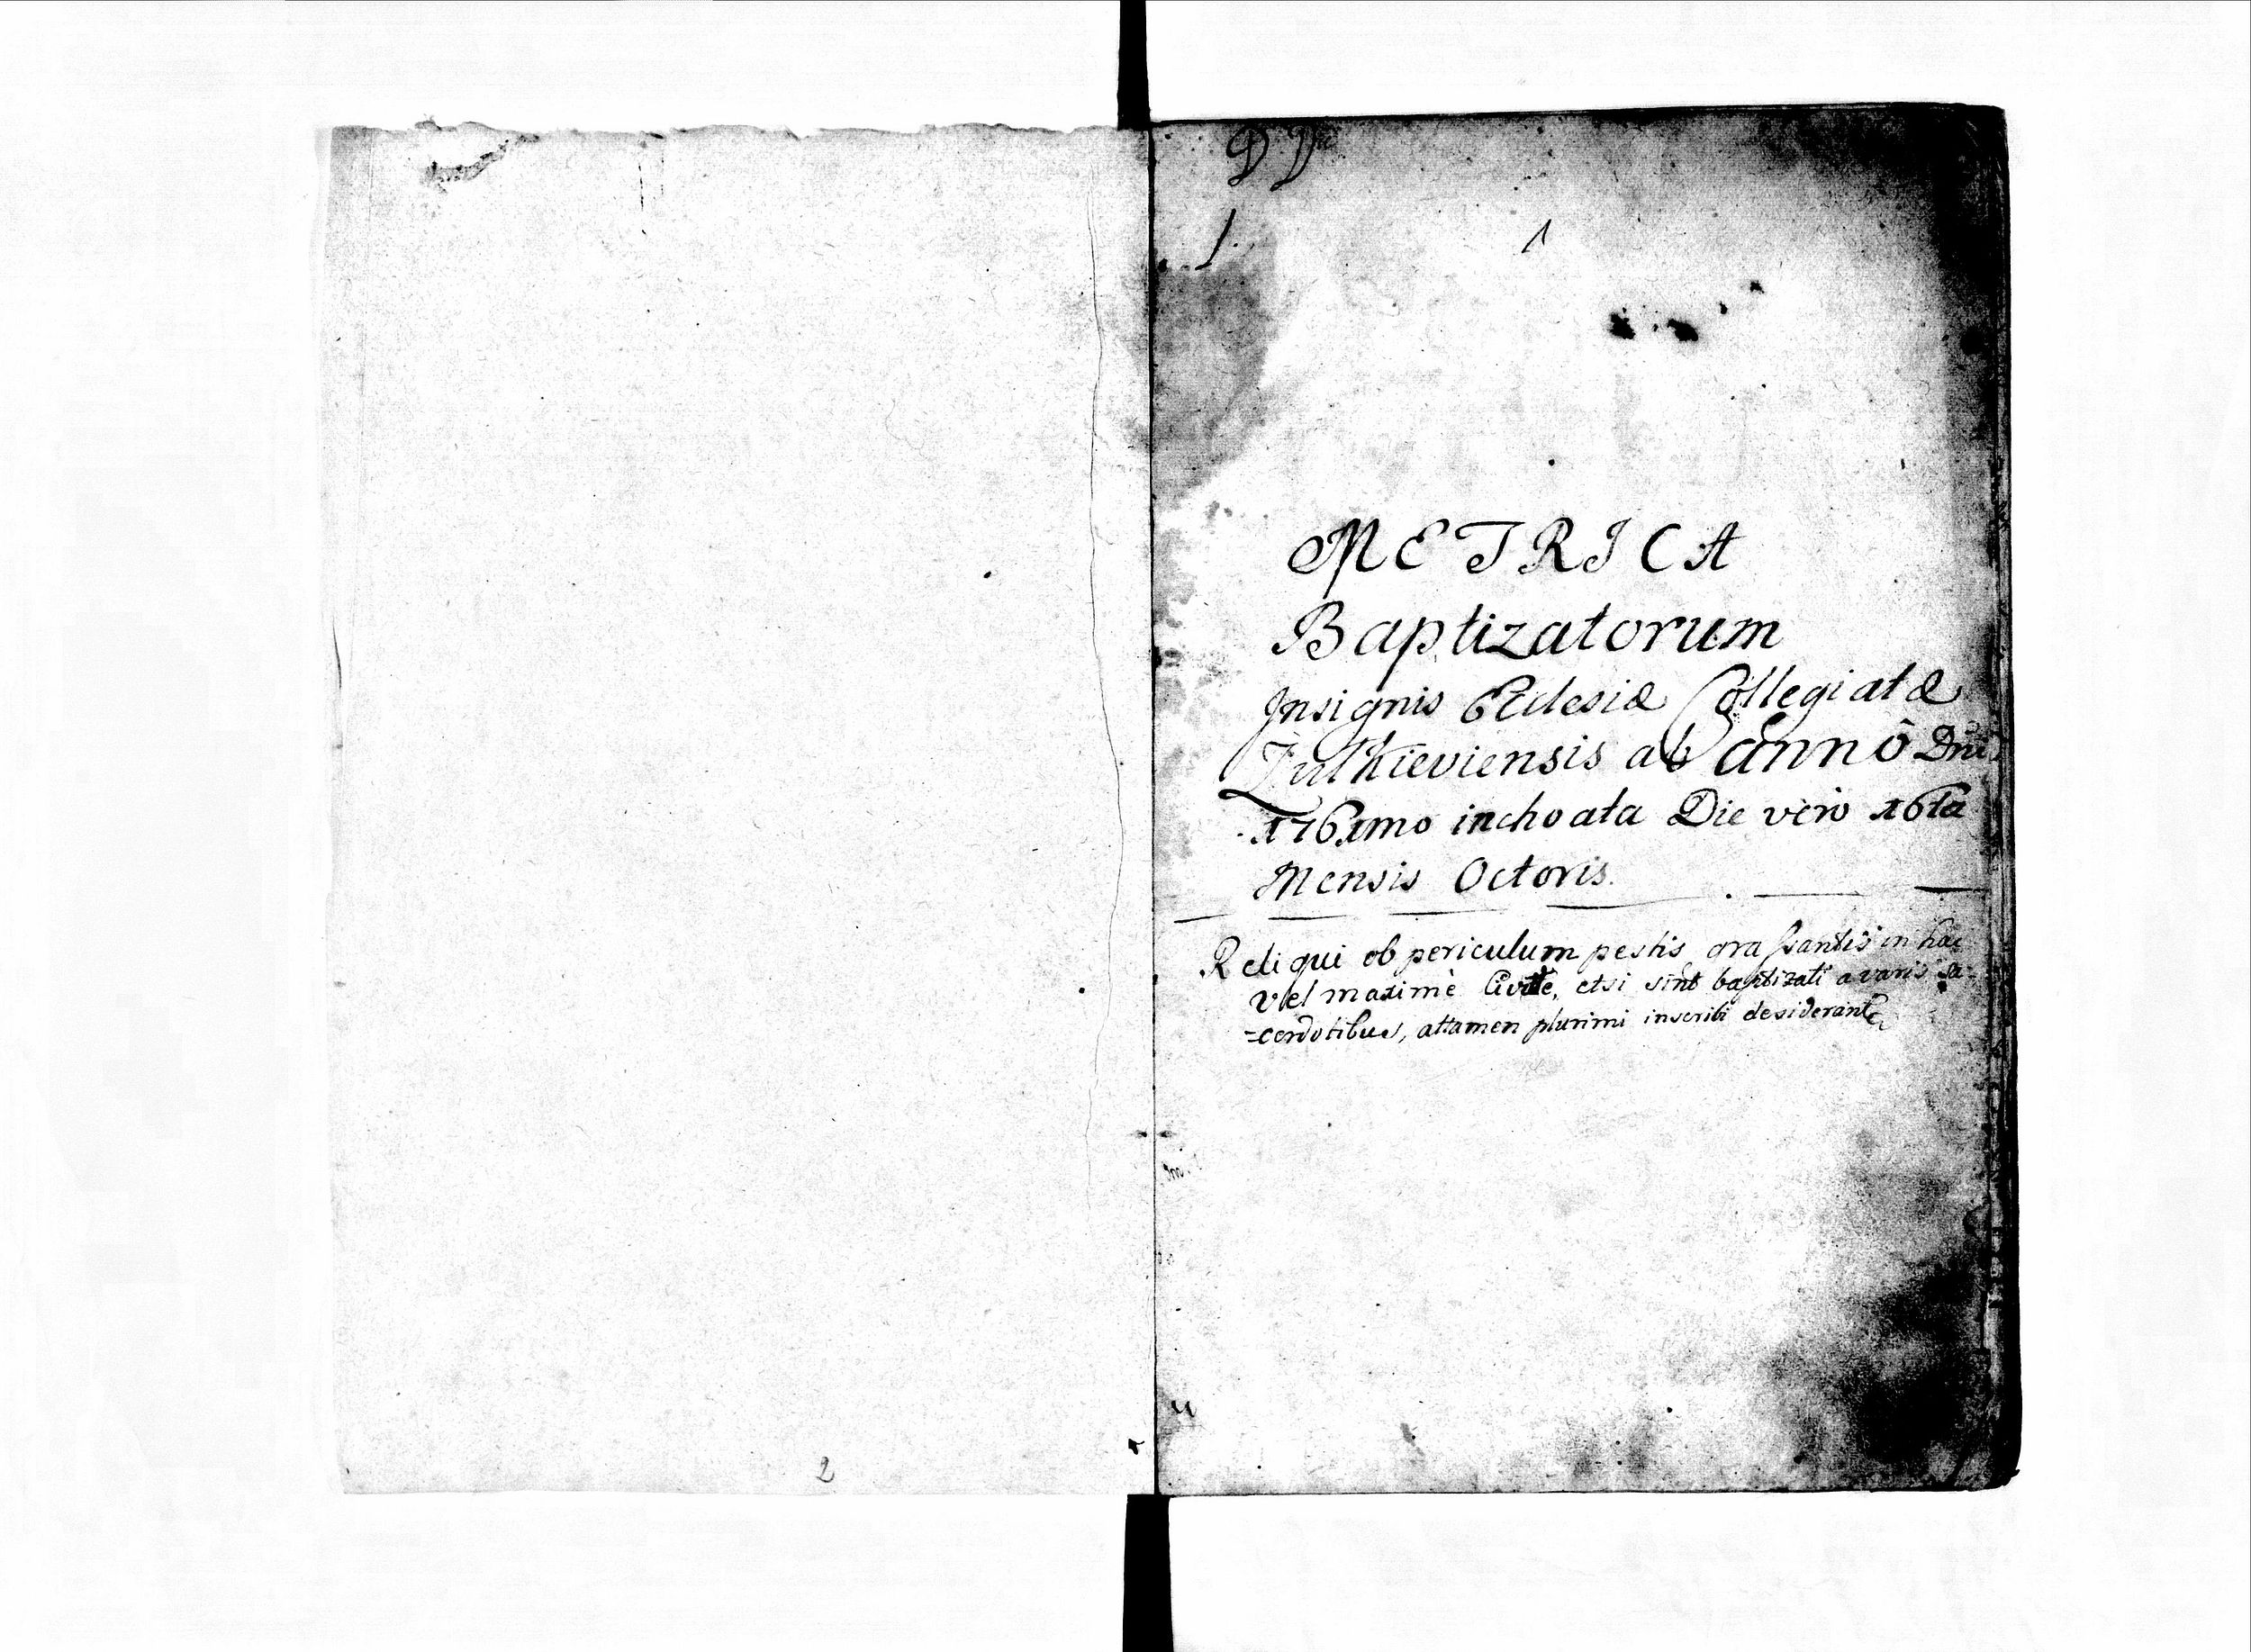 1
METRICA
Baptizatorum
Insignis Ecclesiæ Collegiatæ
Zulkieviensis ab annô Dni
inchoata Die vero 16ta
Mensis Octoris.
Reliqui ob periculum pestis grassantis in hac
vel maximè Civitte, etsi sint baptizati a varis sa=
=cerdotibus, attamen plurimi inscribi desiderantr
2